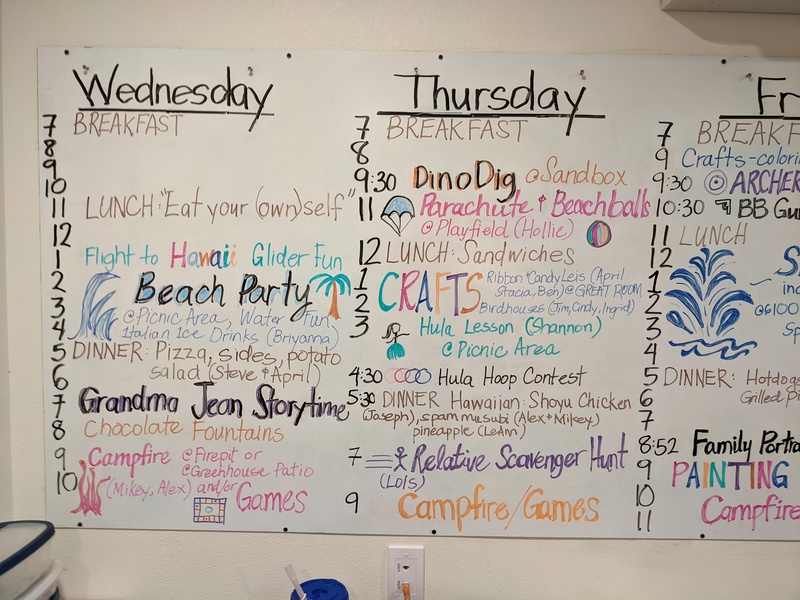 Wednesday
7 BREAKFAST
8
9
10
11 LUNCH: "Eat your (own)self"
12
1 Flight to Hawaii Glider Fun
2 Beach Party
3 @Picnic Area, Water Fun,
4 Italian Ice Drinks (Briyanna)
5 DINNER: Pizza, sides, potato
6 salad (Steve & April)
7 Grandma Jean Storytime
8 Chocolate Fountains
9 Campfire @Firepit or
@Greenhouse Patio
10 (Mikey, Alex) and/or Games
Thursday
7 BREAKFAST
8
9:30 Dino Dig @Sandbox
11 Parachute & Beachballs
@Playfield (Hollie)
12 LUNCH: Sandwiches
1 CRAFTS Ribbon/Candy Leis (April
Stacia, Ben) @GREAT ROOM
2 Birdhouses (Jim, Cindy, Ingrid)
3 Hula Lesson (Shannon)
@Picnic Area
4:30 Hula Hoop Contest
5:30 DINNER Hawaiian: Shoyu Chicken
(Joseph), spam musubi (Alex + Mikey)
pineapple (LeAnn)
7 Relative Scavenger Hunt
(Lois)
9 Campfire/Games
Fr
7 BREAKF
9 Crafts-colori
9:30 ARCHER
10:30 BB Gu
11 LUNCH
12
1 S
2 in
3 @6100
4 Sp
5 DINNER: Hotdogs
6 Grilled Pi
7
8:52 Family Portra
9 PAINTING
10
11 Campfire